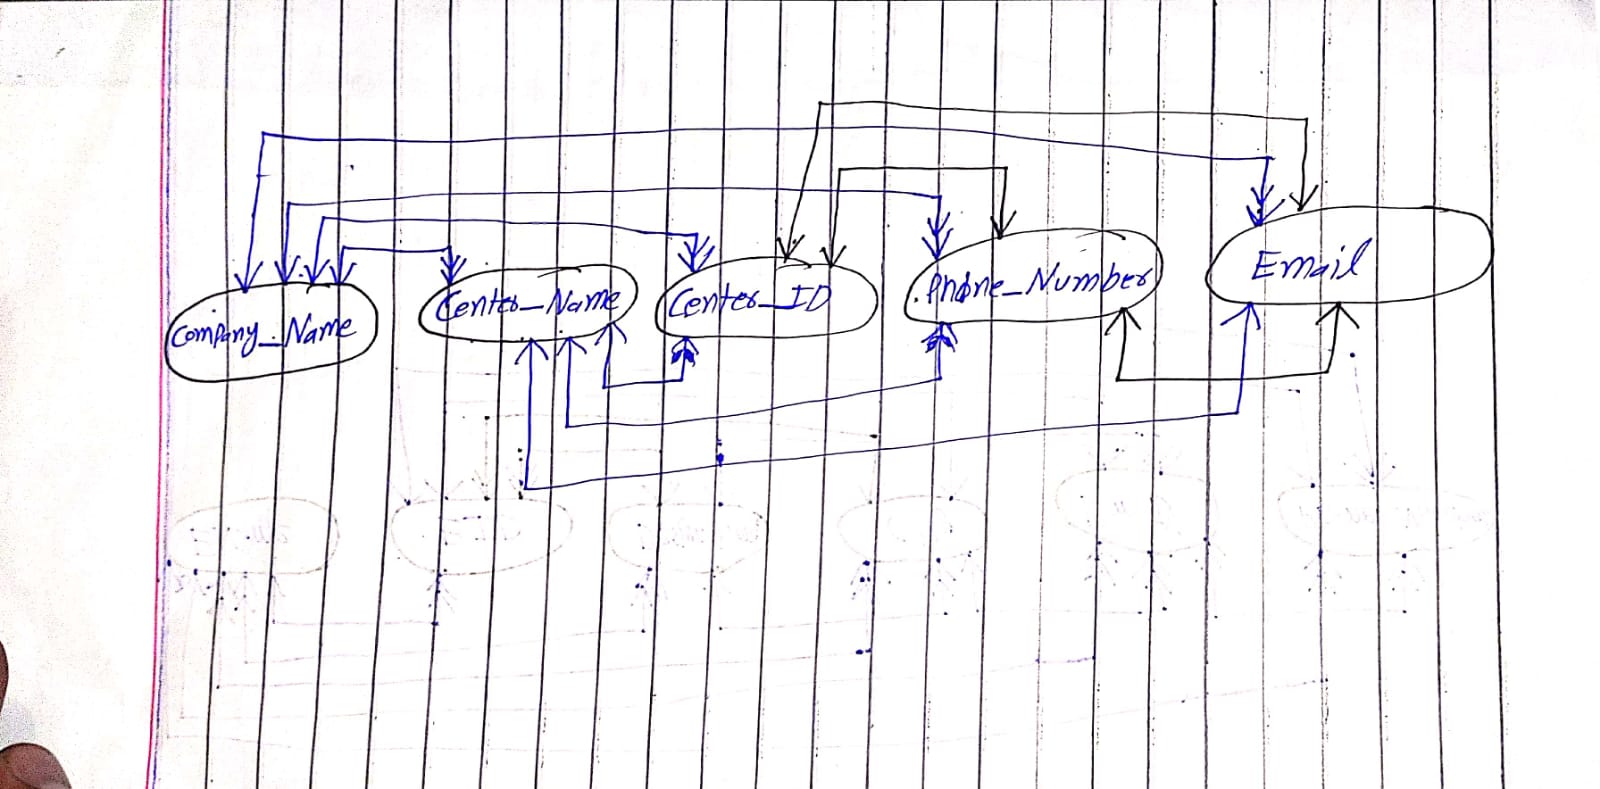 Company_Name
Center_Name
Center_ID
Phone_Number
Email